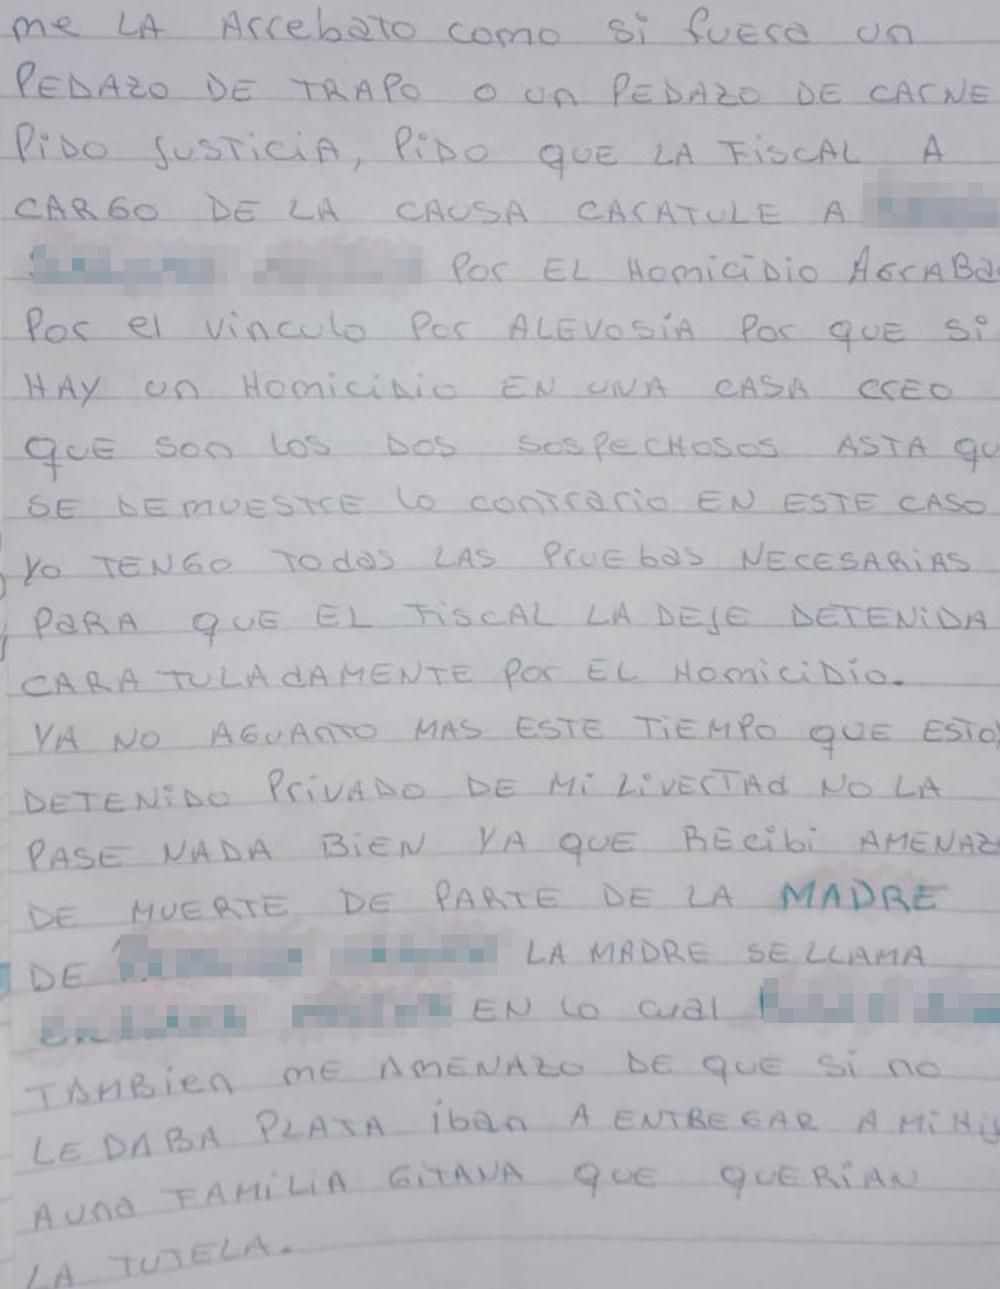 me LA Arrebato como si fuera un
PEDAZO DE TRAPO o un PEDAZO DE CArNE
PiDO JUSTICIA, PiDO QUE LA FISCAL A
CARGO DE LA CAUSA CArATULE A
Por EL Homicidio AGrABad
Por el vinculo Por ALEVOSíA Por QUE Si
HAY un Homicidio EN UNA CASA CrEO
QUE son los DOS SOSPECHOSOS ASTA QU
SE DEMUESTrE lo contrario EN ESTE CASO
Yo TENGO Todas LAS PrUEbas NECESARIAS
PaRA QUE EL FISCAL LA DEJE DETENIDA
CARATULADAMENTE Por EL Homicidio.
YA NO AGUANTO MAS ESTE TIEMPO QUE ESTOY
DETENIDO PriVADO DE Mi LIVErTAd NO LA
PASE NADA BIEN YA QUE RECibi AMENAZ
DE MUERTE DE PARTE DE LA MADRE
DE LA MADRE SE LLAMA
EN lo cual
TAMBien ME AMENAZO DE QUE Si no
LE DABA PLATA iban A ENTREGAR A Mi Hij
A Una FAMILIA GITANA QUE QUERIAN
LA TUTELA.